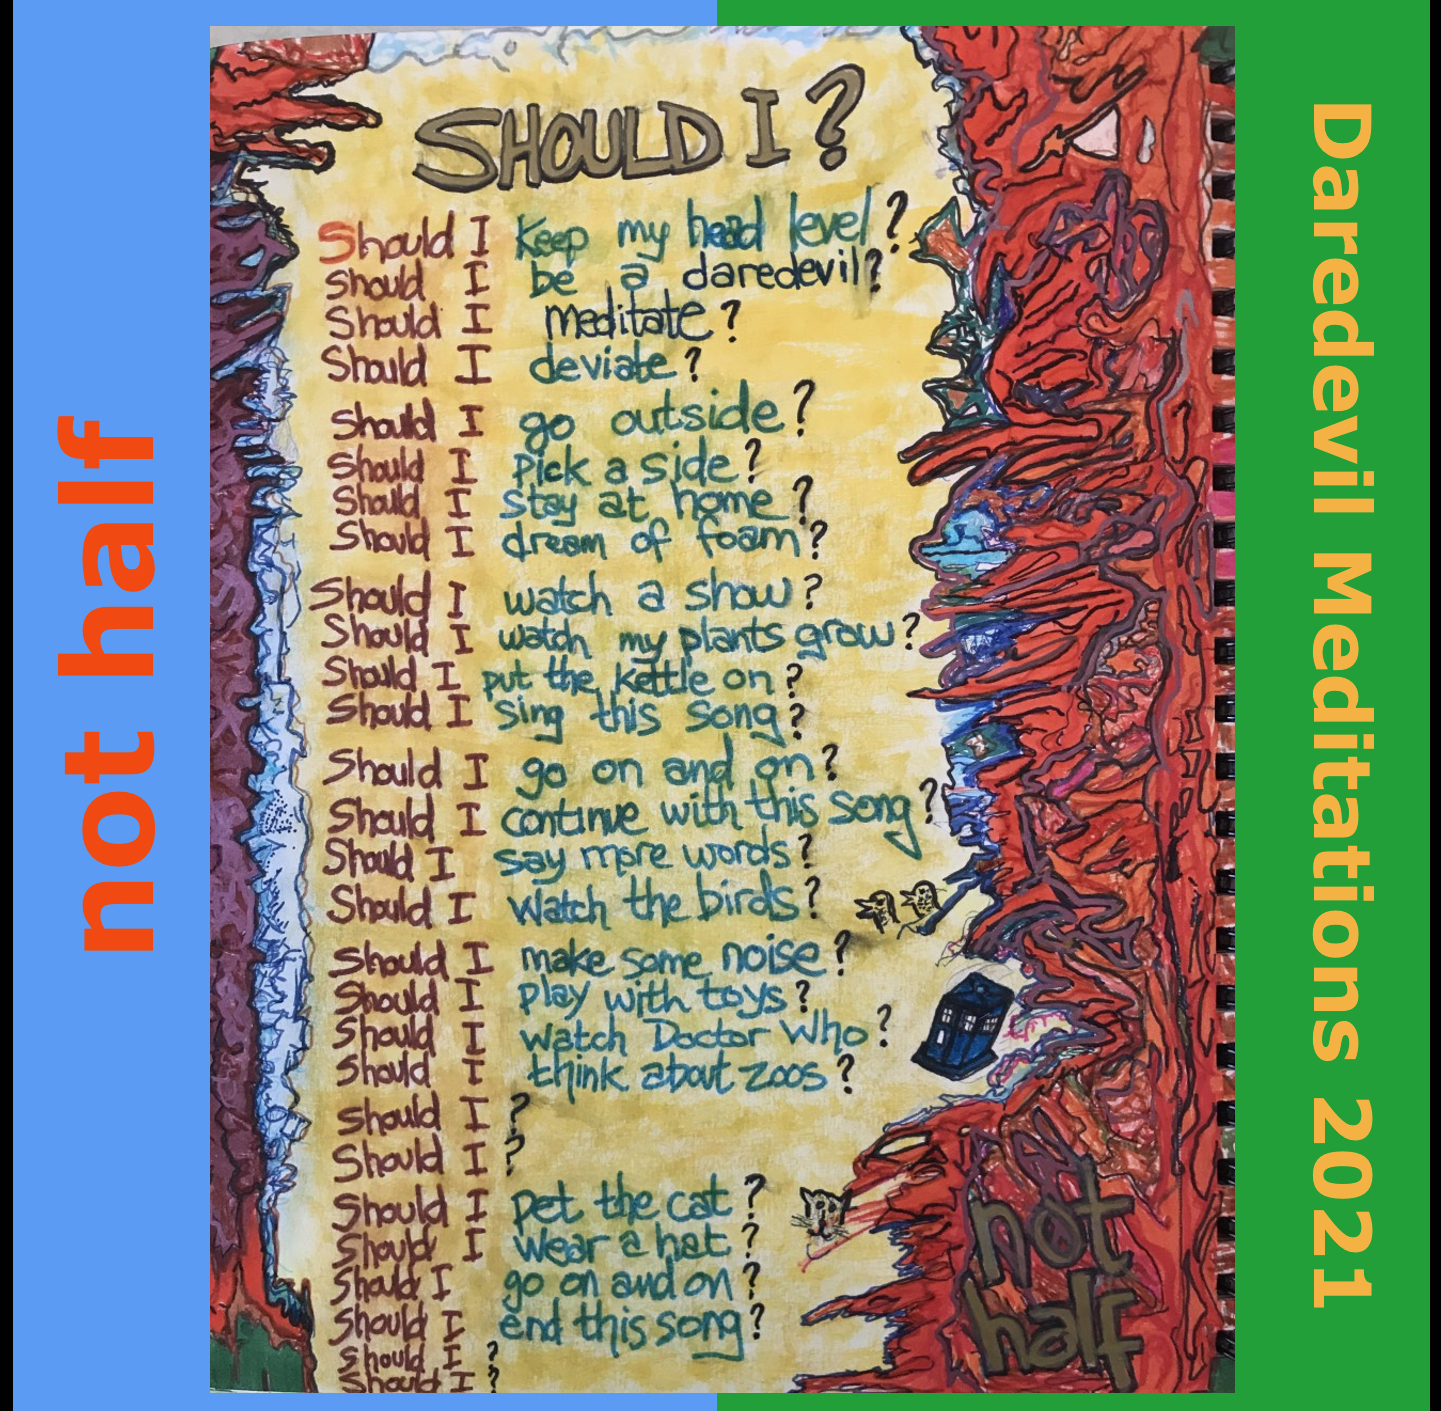 not half
SHOULD I?
Should I Keep my head level?
Should I be a daredevil?
Should I meditate?
Should I deviate?
Should I go outside?
Should I pick a side?
Should I stay at home?
Should I dream of foam?
Should I watch a show?
Should I watch my plants grow?
Should I put the kettle on?
Should I sing this song?
Should I go on and on?
Should I continue with this song?
Should I say more words?
Should I watch the birds?
Should I make some noise?
Should I play with toys?
Should I watch Doctor Who?
Should I think about zoos?
Should I?
Should I?
Should I pet the cat?
Should I wear a hat?
Should I go on and on?
Should I end this song?
Should I?
Should I?
not
half
Daredevil Meditations 2021